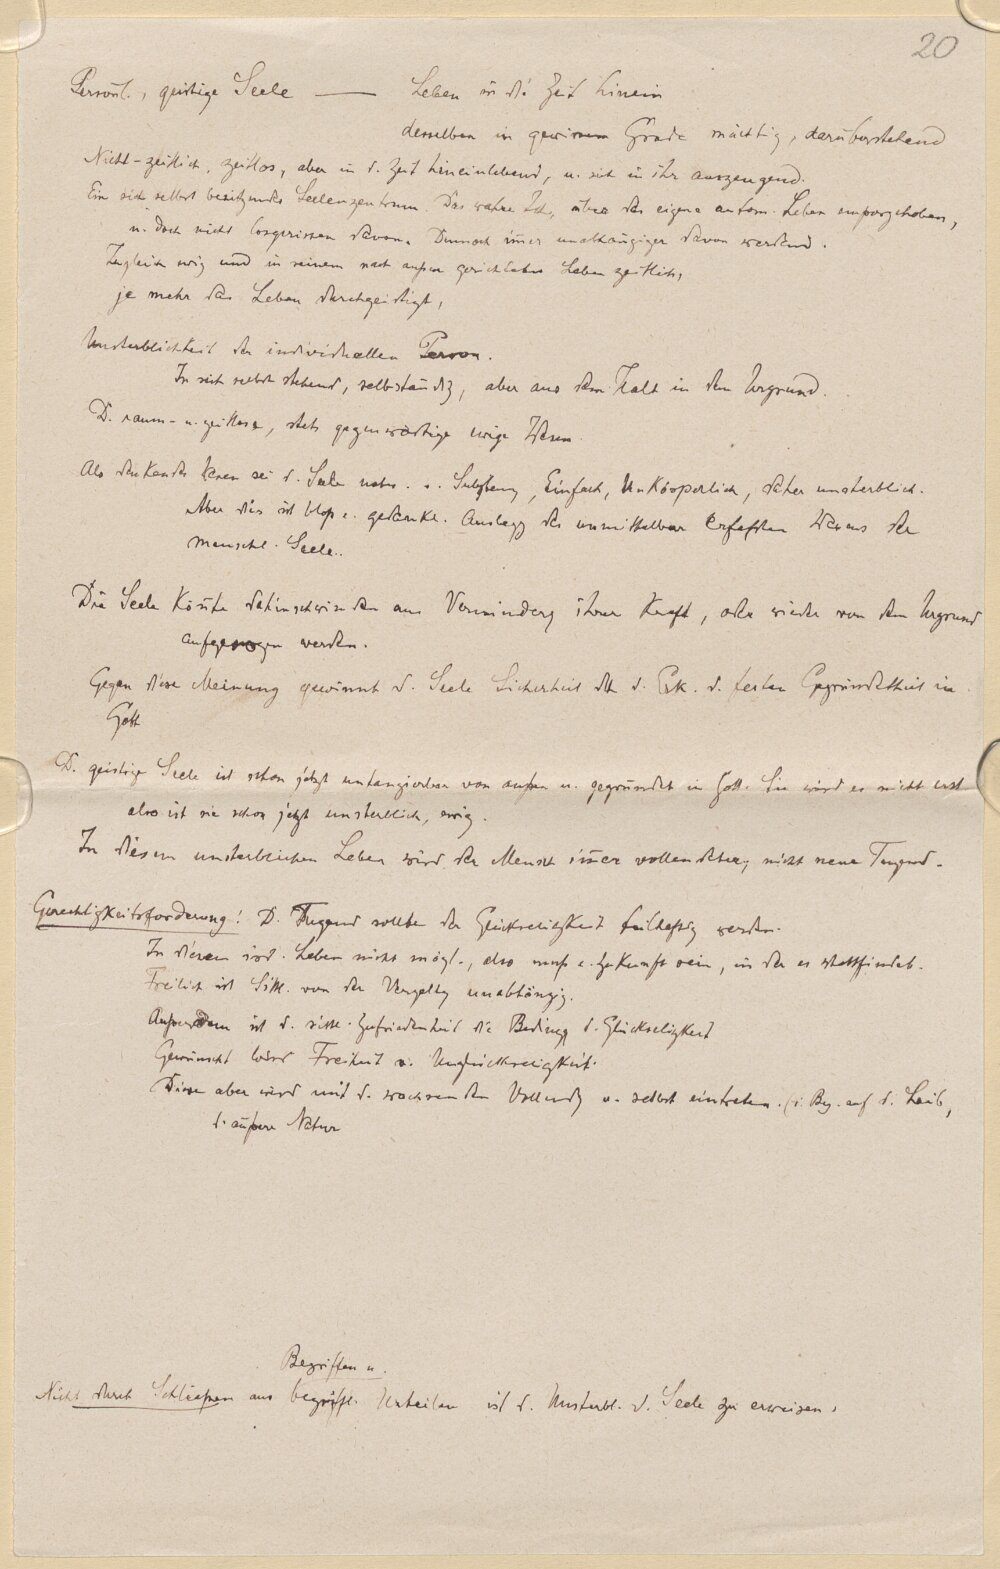 20
Persönl., geistige Seele — Leben in die Zeit hinein
desselben in gewissem Grade mächtig, darüberstehend
Nicht-zeitlich, zeitlos, aber in d. Zeit hineinlebend, u. sich in ihr auszeugend.
Ein sich selbst besitzendes Seelenzentrum. Das wahre Ich, über das eigene autom. Leben emporgehoben,
u. doch nicht losgerissen davon. Dennoch immer unabhängiger davon werdend.
Zugleich ewig und in seinem nach aussen gerichteten Leben zeitlich,
je mehr das Leben durchgeistigt,
Unsterblichkeit der individuellen Person.
In sich selbst stehend, selbständig, aber aus dem Halt in dem Urgrund.
D. raum- u. zeitlose, stets gegenwärtige ewige Wesen.
Als denkendes Wesen sei d. Seele e. Substanz, Einfach, Unkörperlich, daher unsterblich.
Aber dies ist bloß e. gedankl. Auslegg des unmittelbar Erfaßten Wesens der
menschl. Seele.
Die Seele könnte dahinschwinden aus Verminderg ihrer Kraft, oder wieder von dem Urgrund
aufgesogen werden.
Gegen diese Meinung gewinnt d. Seele Sicherheit dch d. Erk. d. festen Gegründetheit in
Gott
D. geistige Seele ist schon jetzt untangierbar von außen u. gegründet in Gott. Sie wird es nicht erst
also ist sie schon jetzt unsterblich, ewig.
In diesem unsterblichen Leben wird der Mensch immer vollendeter, nicht neue Tugend.
Gerechtigkeitsforderung! D. Tugend sollte der Glückseligkeit teilhaftig werden.
In diesem ird. Leben nicht mögl., also muß e. Zukunft sein, in der es stattfindet.
Freilich ist Sittl. von der Vergeltg unabhängig.
Außerdem ist d. sittl. Zufriedenheit die Bedingg d. Glückseligkeit
Gewünscht wird Freiheit v. Unglückseligkeit.
Diese aber wird mit d. wachsenden Vollendg v. selbst eintreten. (i. Bez. auf d. Leib,
d. äußere Natur
Begriffen u.
Nicht durch Schließen aus begriffl. Urteilen ist d. Unsterbl. d. Seele zu erweisen.